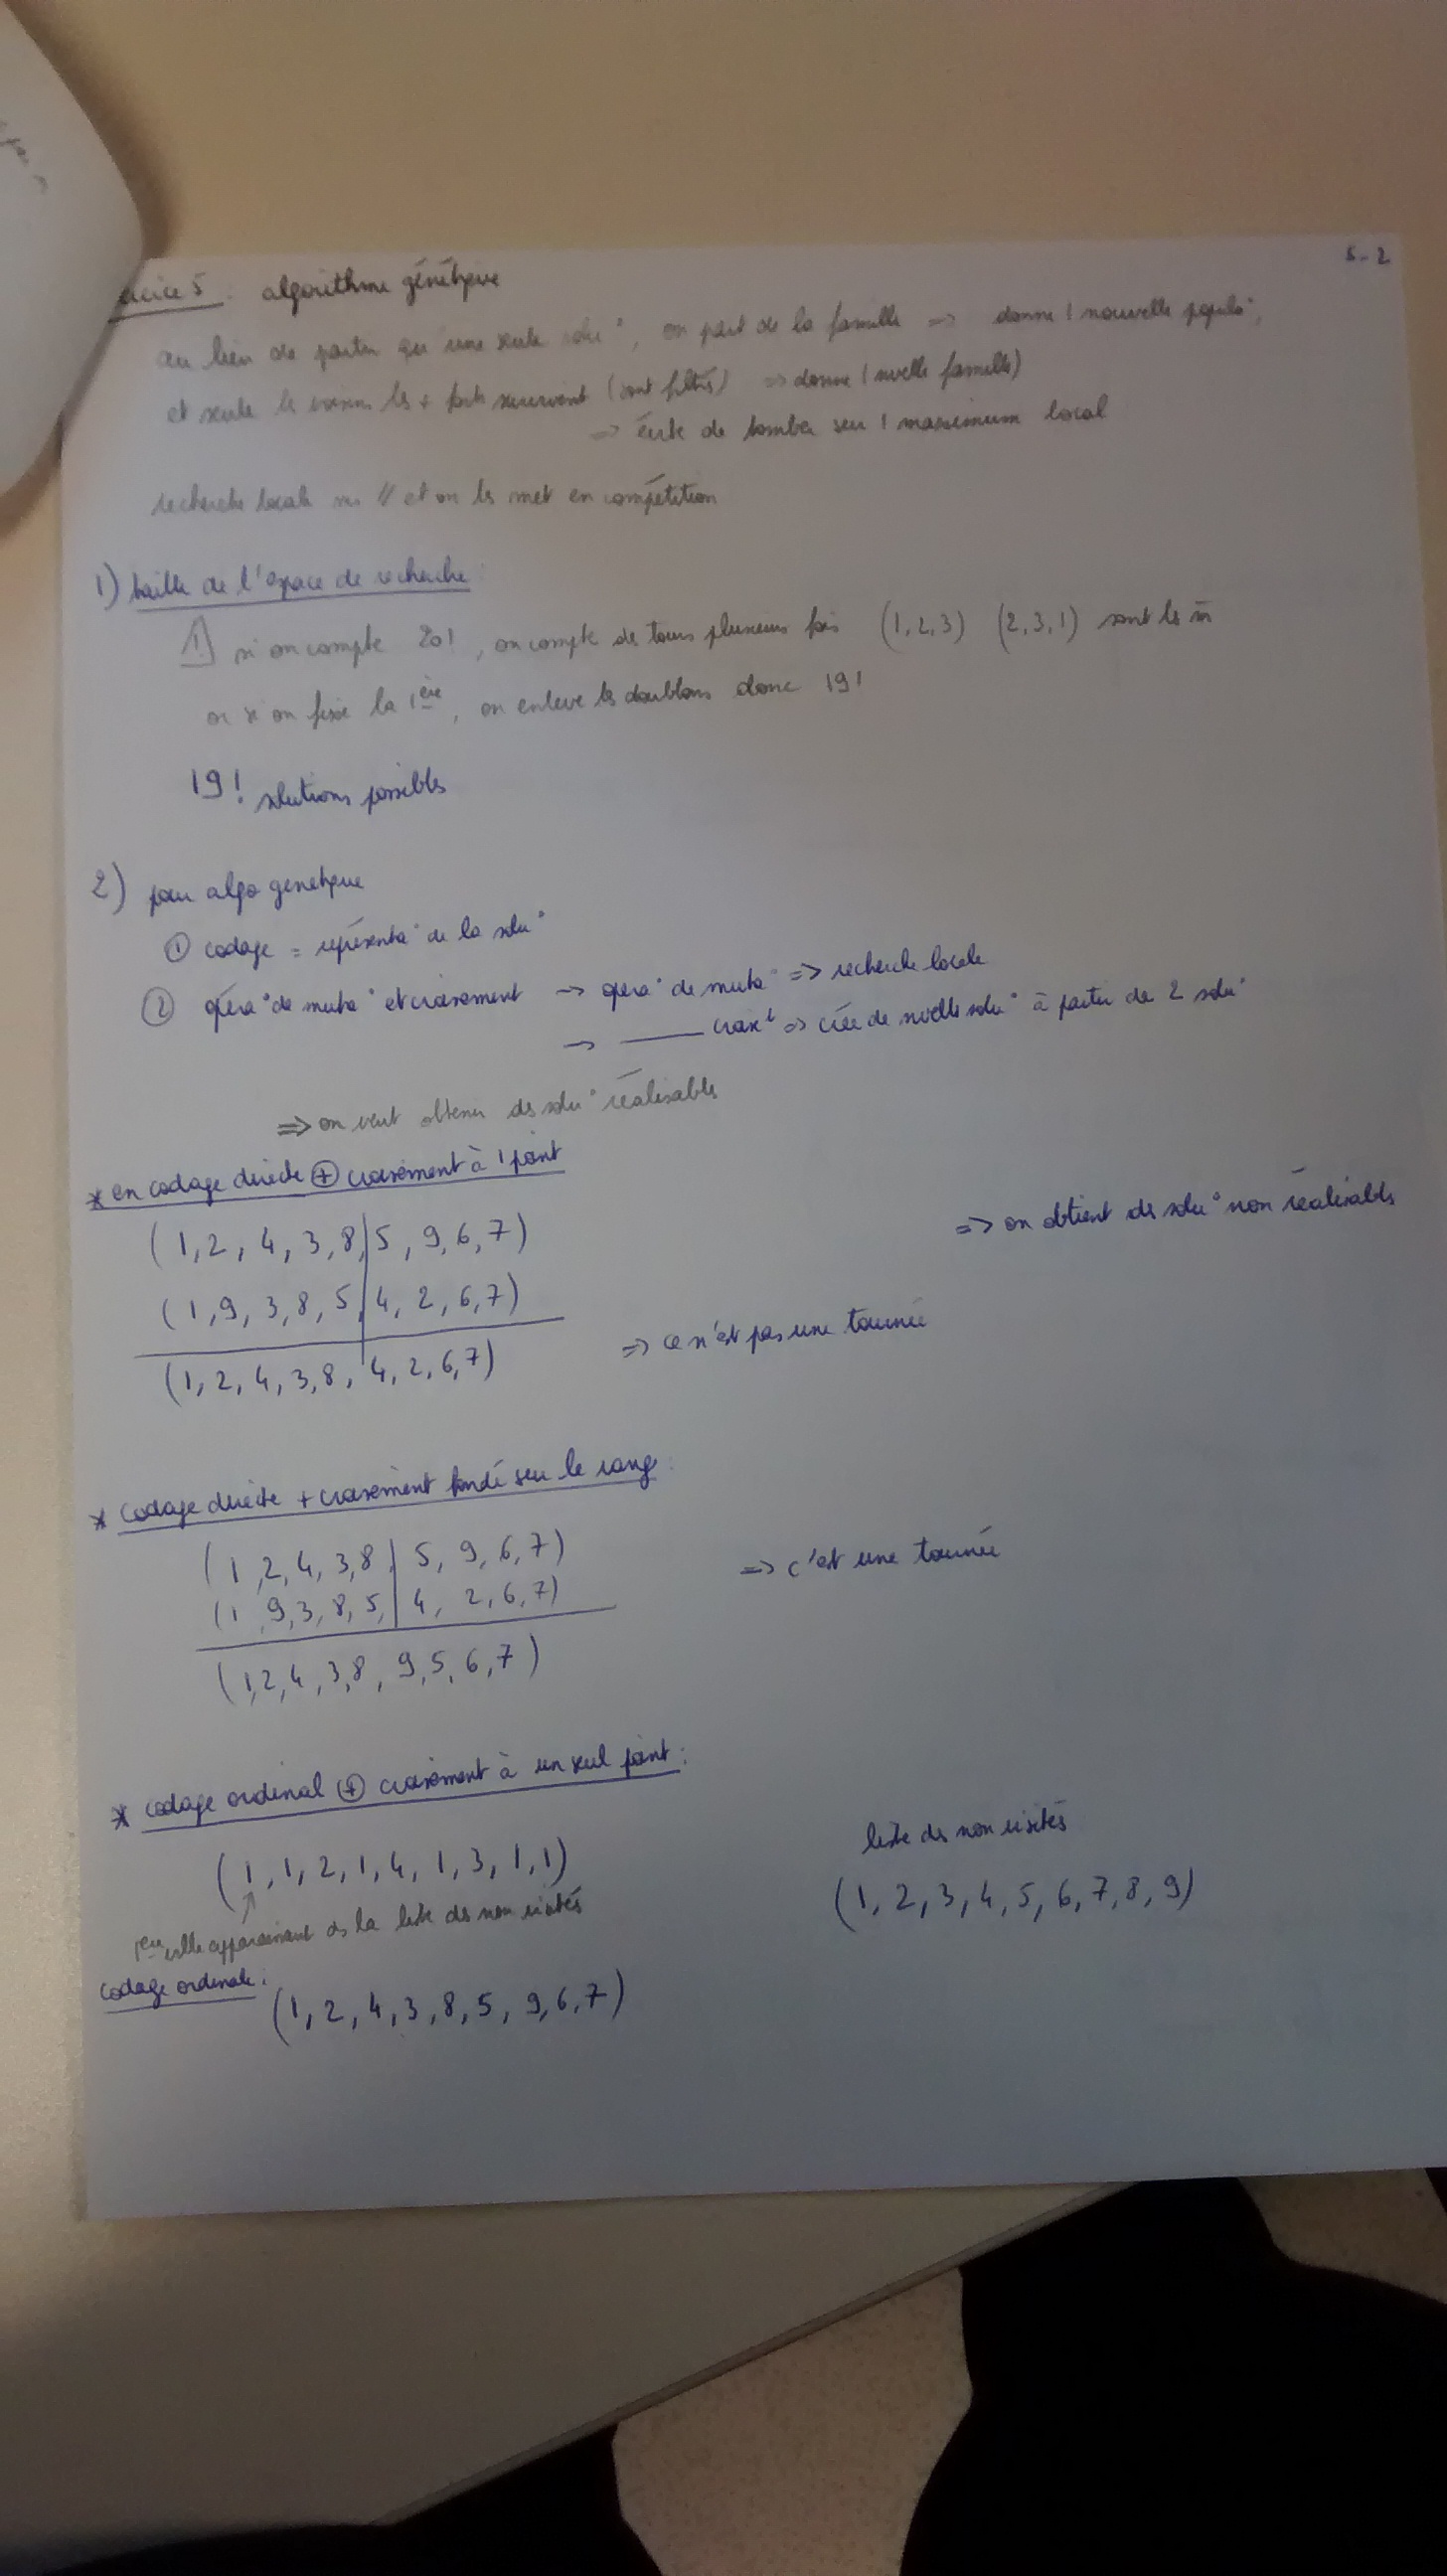 5-2
cice 5 : algorithme génétique
au lieu de partir qu'une seule solu°, on part de la famille => donne 1 nouvelle popula°,
et seule les + forts survivent (sont filtrés) => donne 1 nvelle famille)
=> évite de tomber sur 1 maximum local
recherche locale en // et on les met en compétition
1) taille de l'espace de recherche :
si on compte 20!, on compte des tours plusieurs fois (1,2,3) (2,3,1) sont les m̄
or si on fixe la 1ère, on enleve les doublons donc 19!
19! solutions possibles
2) pour algo genetique
① codage = représenta° de la solu°
② opéra° de muta° et croisement -> opera° de muta° => recherche locale
-> ____ croist => crée de nvelle solu° à partir de 2 solu°
=> on veut obtenir des solu° réalisables
* en codage directe ⊕ croisement à 1 point
(1,2,4,3,8,|5,9,6,7) => on obtient des solu° non réalisables
(1,9,3,8,5,|4,2,6,7)
(1,2,4,3,8,4,2,6,7) => ce n'est pas une tournée
* codage directe + croisement fondé sur le rang :
(1,2,4,3,8,|5,9,6,7) => c'est une tournée
(1,9,3,8,5,|4,2,6,7)
(1,2,4,3,8,9,5,6,7)
* codage ordinal ⊕ croisement à un seul point :
liste des non visités
(1,1,2,1,4,1,3,1,1) (1,2,3,4,5,6,7,8,9)
ville apparaissant ds la liste des non visités
codage ordinale : (1,2,4,3,8,5,9,6,7)